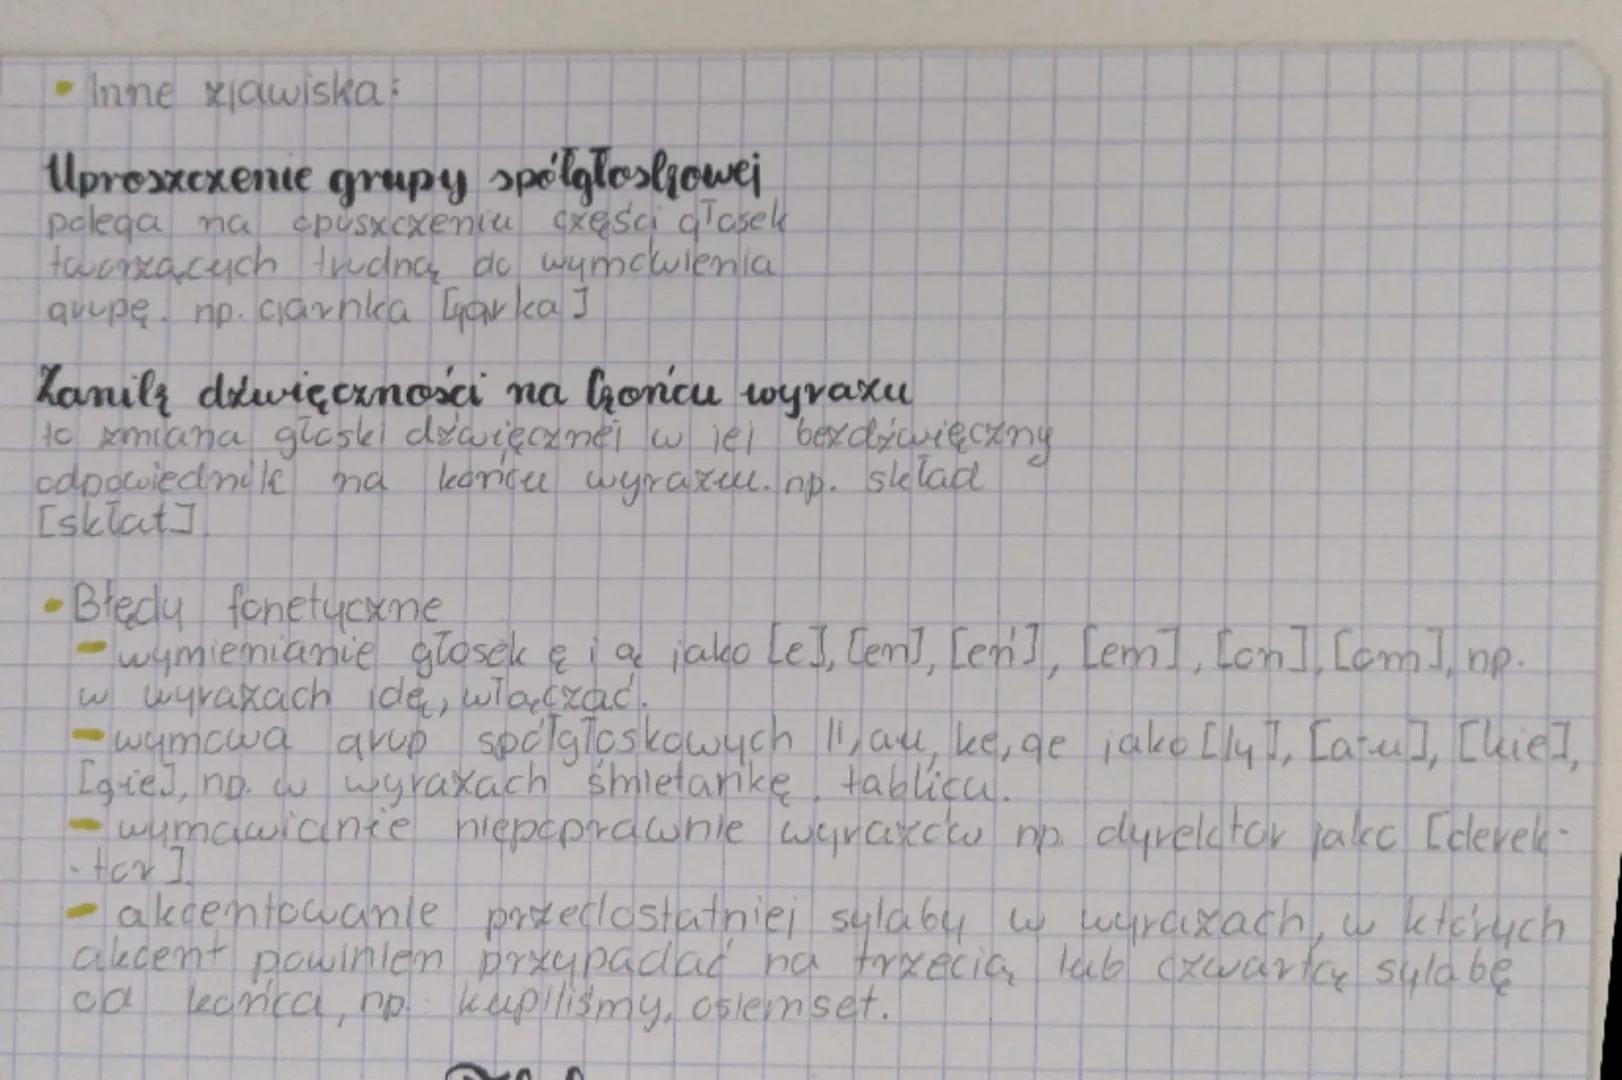 • Inne zjawiska:
Uproszczenie grupy spółgłoskowej
polega na opuszczeniu części głosek
tworzących trudną do wymówienia
grupę. np. garnka [garka]
Zanik dźwięczności na końcu wyrazu
to zmiana głoski dźwięcznej w jej bezdźwięczny
odpowiednik na końcu wyrazu. np. skład
[skłat].
• Błędy fonetyczne
- wymienianie głosek ę i ą jako [e], [en], [eń], [em], [on], [om], np.
w wyrazach idę, włączać.
- wymowa grup spółgłoskowych li, au, ke, ge jako [ly], [a-u], [kie],
[gie], np. w wyrazach śmietankę, tablicu.
- wymawianie niepoprawnie wyrazów np. dyrektor jako [derek-
-tor].
- akcentowanie przedostatniej sylaby w wyrazach, w których
akcent powinien przypadać na trzecią lub czwartą sylabę
od końca, np. kupiliśmy, osiemset.